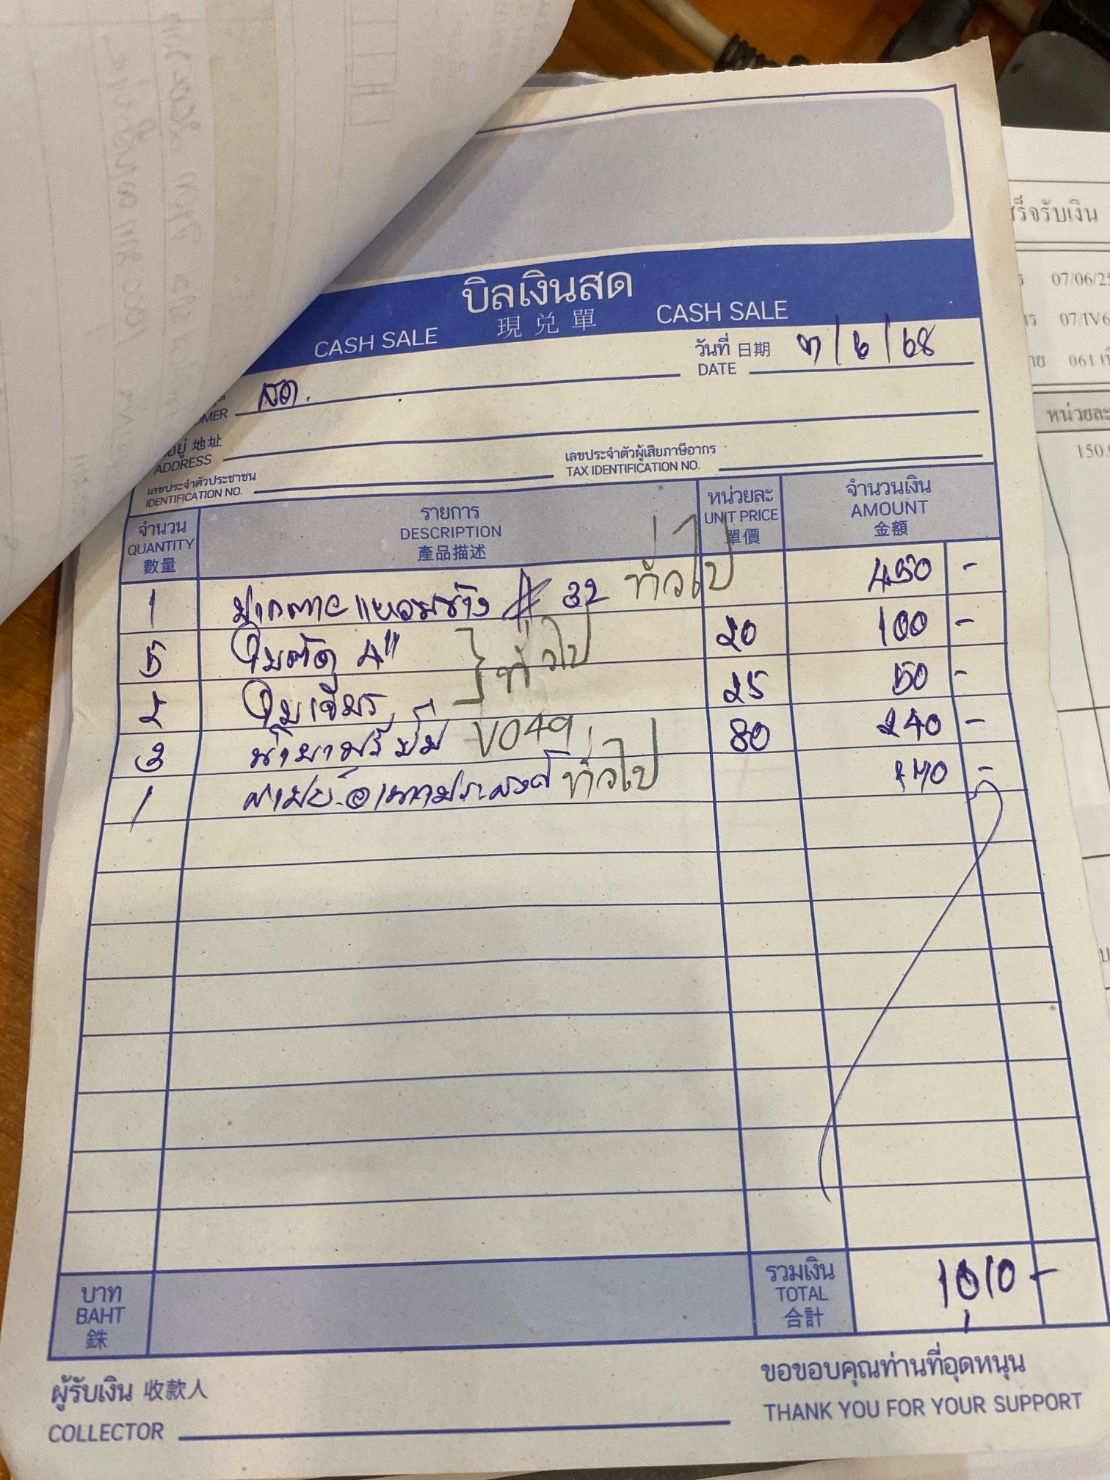 บิลเงินสด
CASH SALE 現兑單 CASH SALE
วันที่ 日期 DATE 7/6/68
OMER สด.
อยู่ 地址
ADDRESS
เลขประจำตัวประชาชน
IDENTIFICATION NO.
เลขประจำตัวผู้เสียภาษีอากร
TAX IDENTIFICATION NO.
จำนวน QUANTITY 數量
รายการ DESCRIPTION 產品描述
หน่วยละ UNIT PRICE 單價
จำนวนเงิน AMOUNT 金額
1 # 32 ทั่วไป 450 -
5 ใบตัด 4" 20 100 -
2 ใบเจียร } ทั่วไป 25 50 -
3 V049 80 240 -
1 อเนกประสงค์ ทั่วไป 170 -
บาท BAHT 銖
รวมเงิน TOTAL 合計 1010 -
ผู้รับเงิน 收款人
COLLECTOR
ขอขอบคุณท่านที่อุดหนุน
THANK YOU FOR YOUR SUPPORT
ร็จรับเงิน
07/06/25
07/IV6
061
หน่วยละ
150.